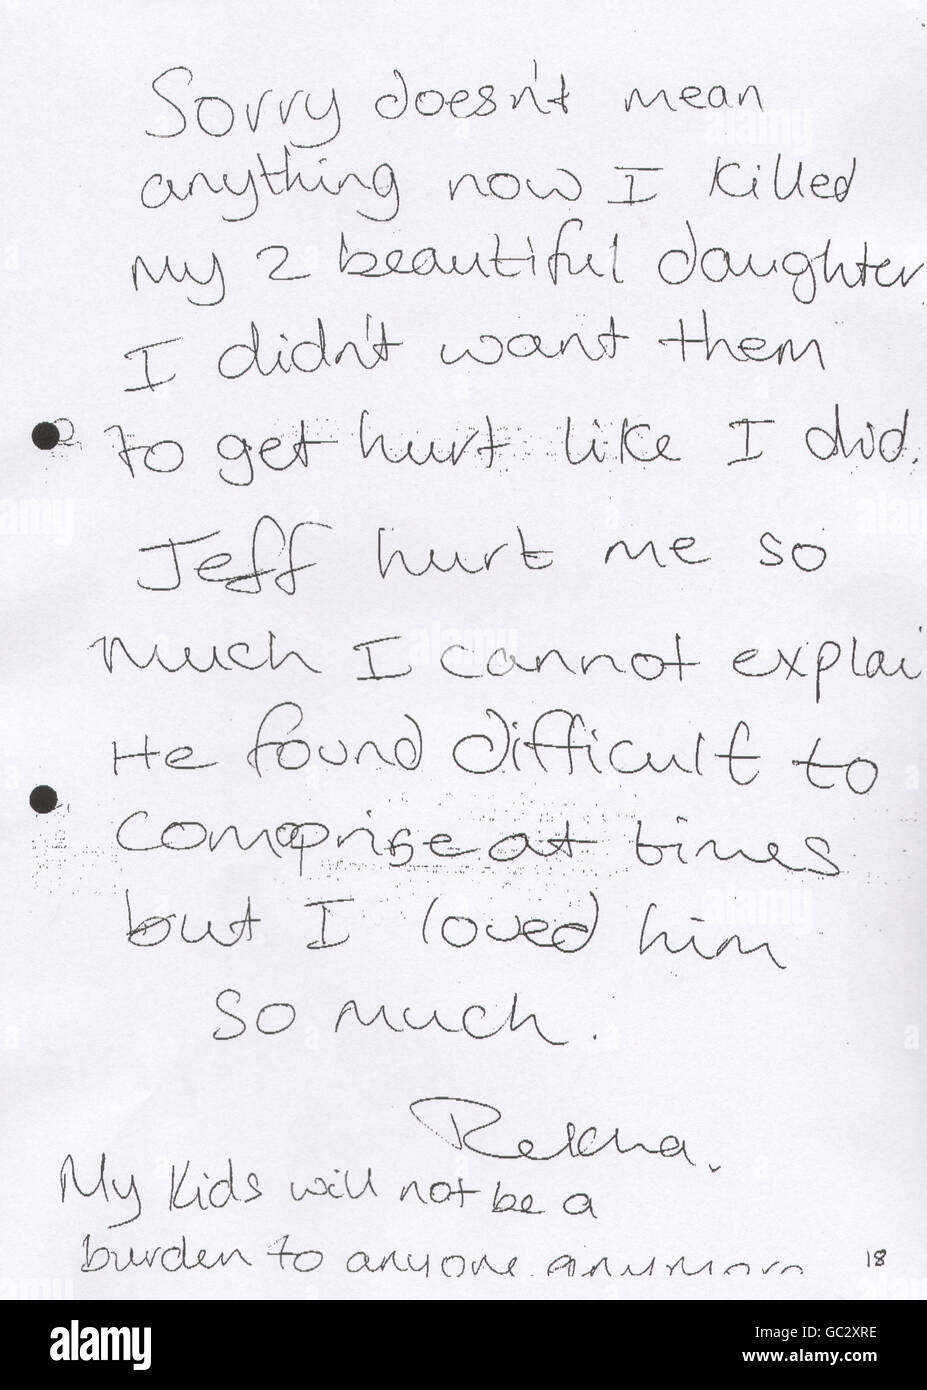 Sorry doesn't mean
anything now I killed
my 2 beautiful daughter
I didn't want them
to get hurt like I did.
Jeff hurt me so
much I cannot explai
He found difficult to
comaprise at times
but I loved him
so much.
Rekha.
My kids will not be a
burden to anyone anymore
18
alamy
Image ID: GC2XRE
www.alamy.com